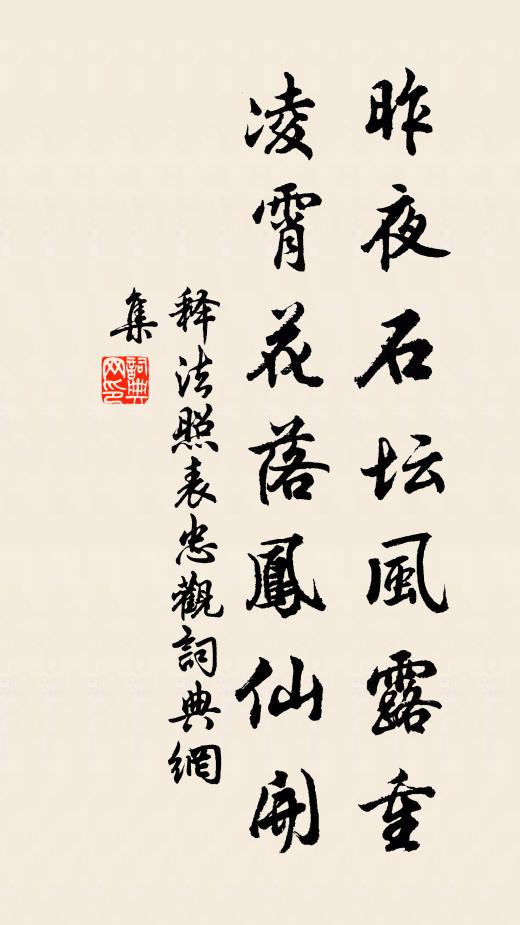 昨夜石坛風露重
凌霄花落鳳仙開
释法照表忠觀詞典網
集
詞典
网印